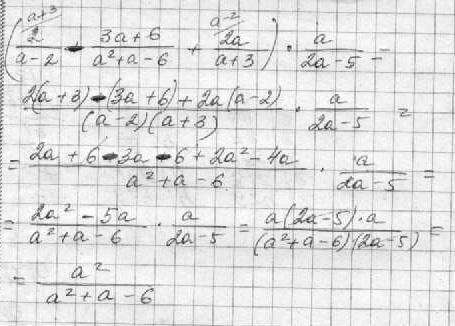 ( 2^{a+3}/(a-2) - (3a+6)/(a²+a-6) + 2a^{a-2}/(a+3) ) · a/(2a-5) =
(2(a+3)-(3a+6)+2a(a-2))/((a-2)(a+3)) · a/(2a-5) =
= (2a+6-3a-6+2a²-4a)/(a²+a-6) · a/(2a-5) =
= (2a²-5a)/(a²+a-6) · a/(2a-5) = (a(2a-5)·a)/((a²+a-6)(2a-5)) =
= a²/(a²+a-6)